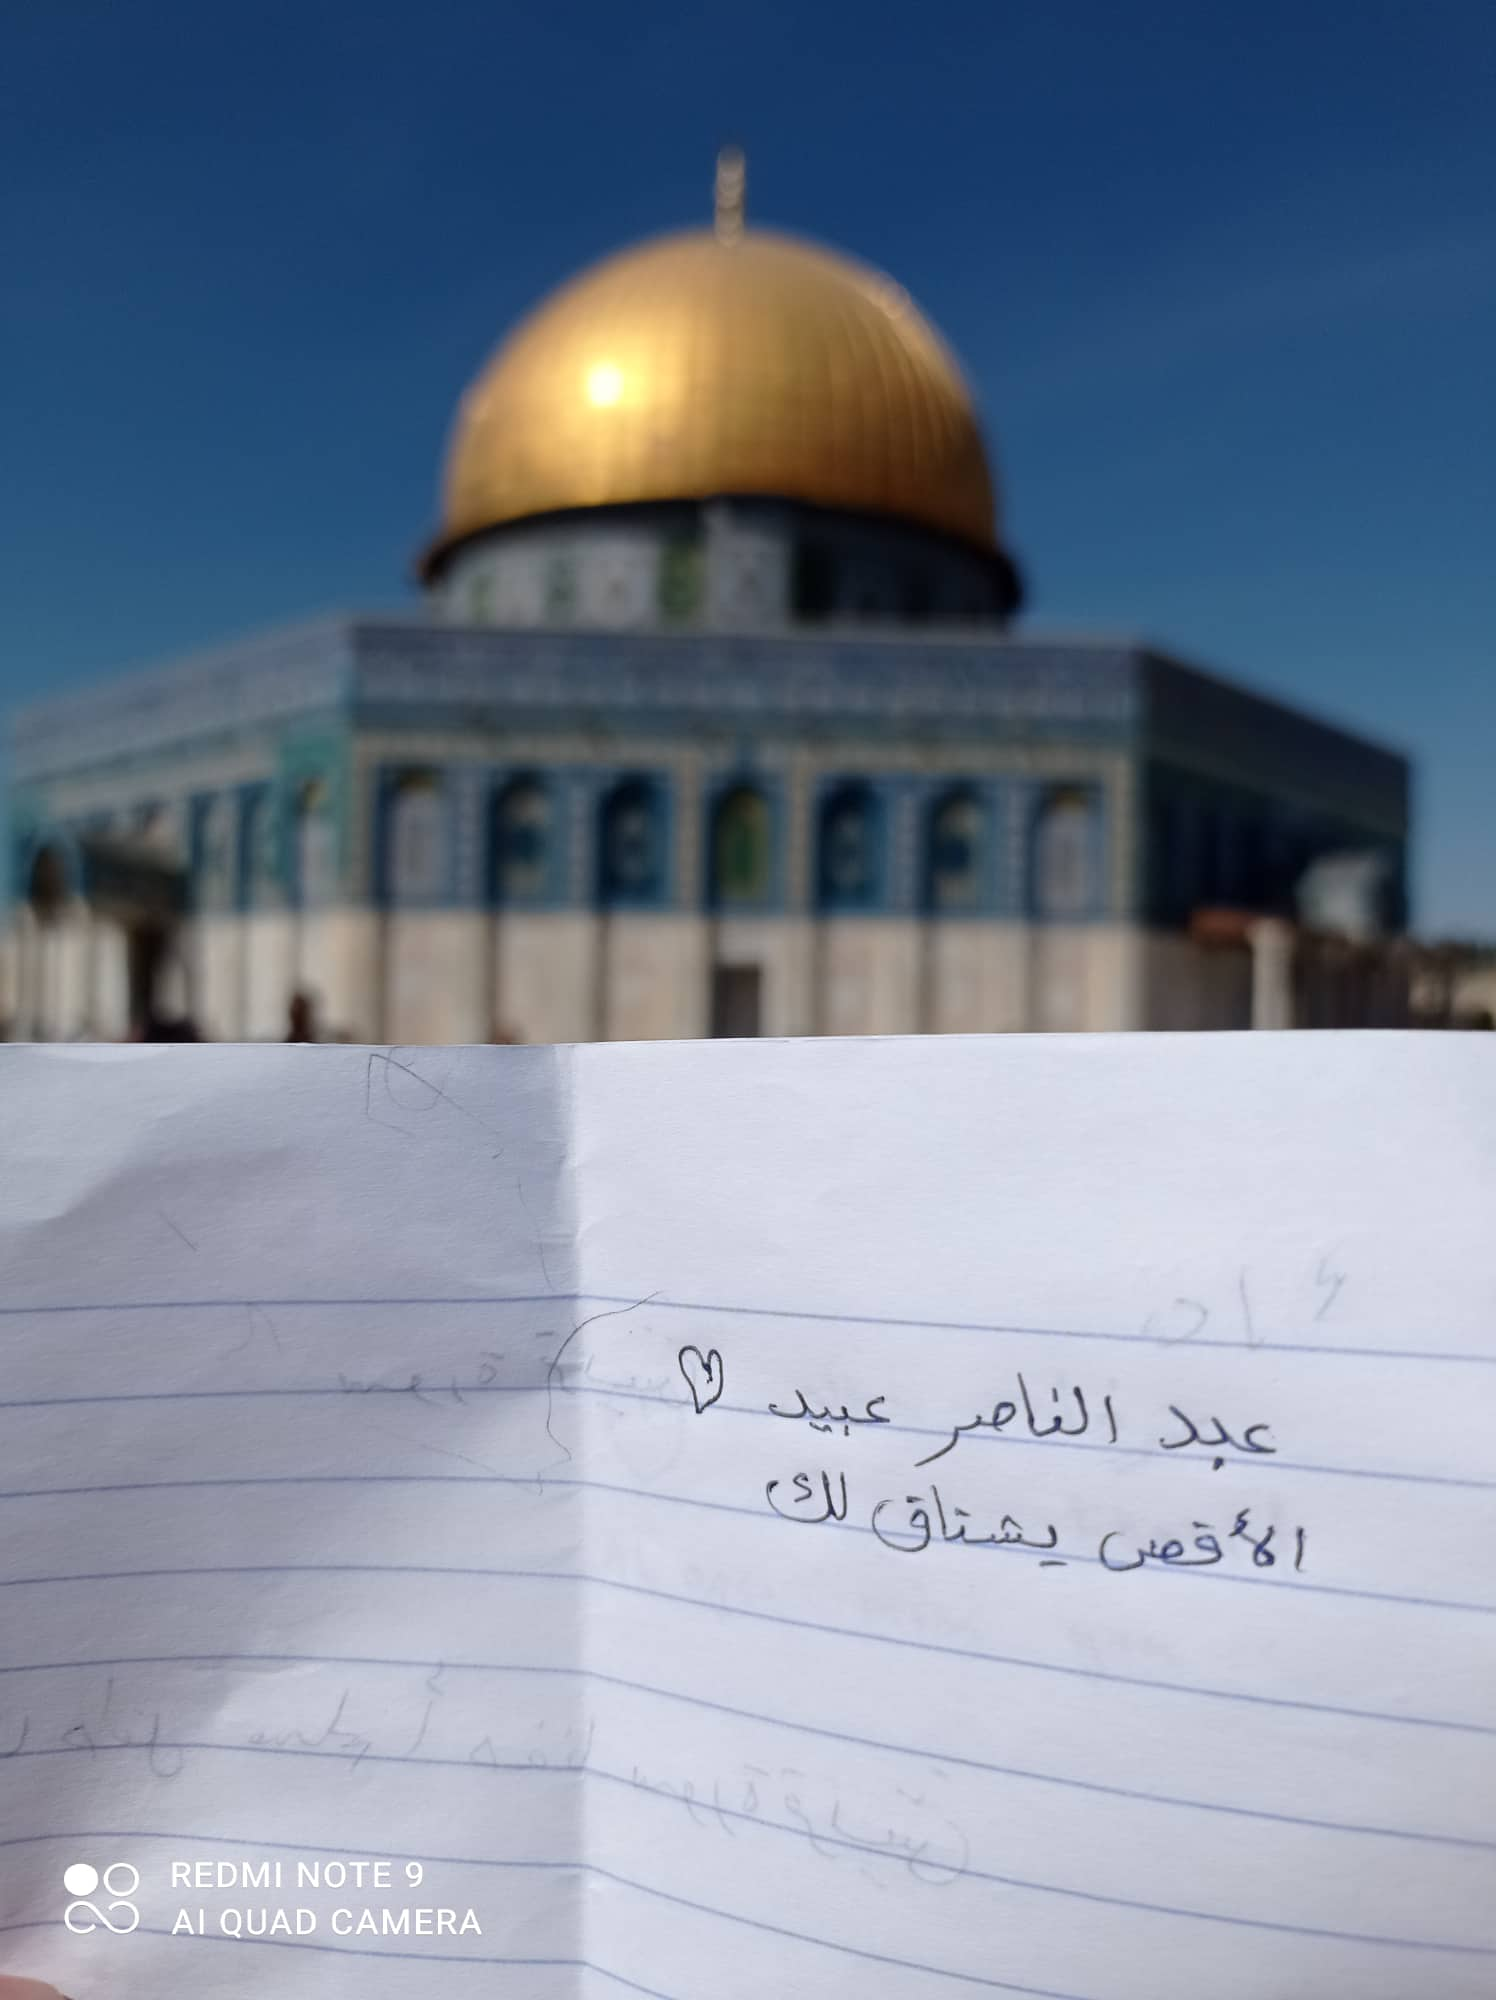 عبد الناصر عبيد
الأقصى يشتاق لك
REDMI NOTE 9
AI QUAD CAMERA